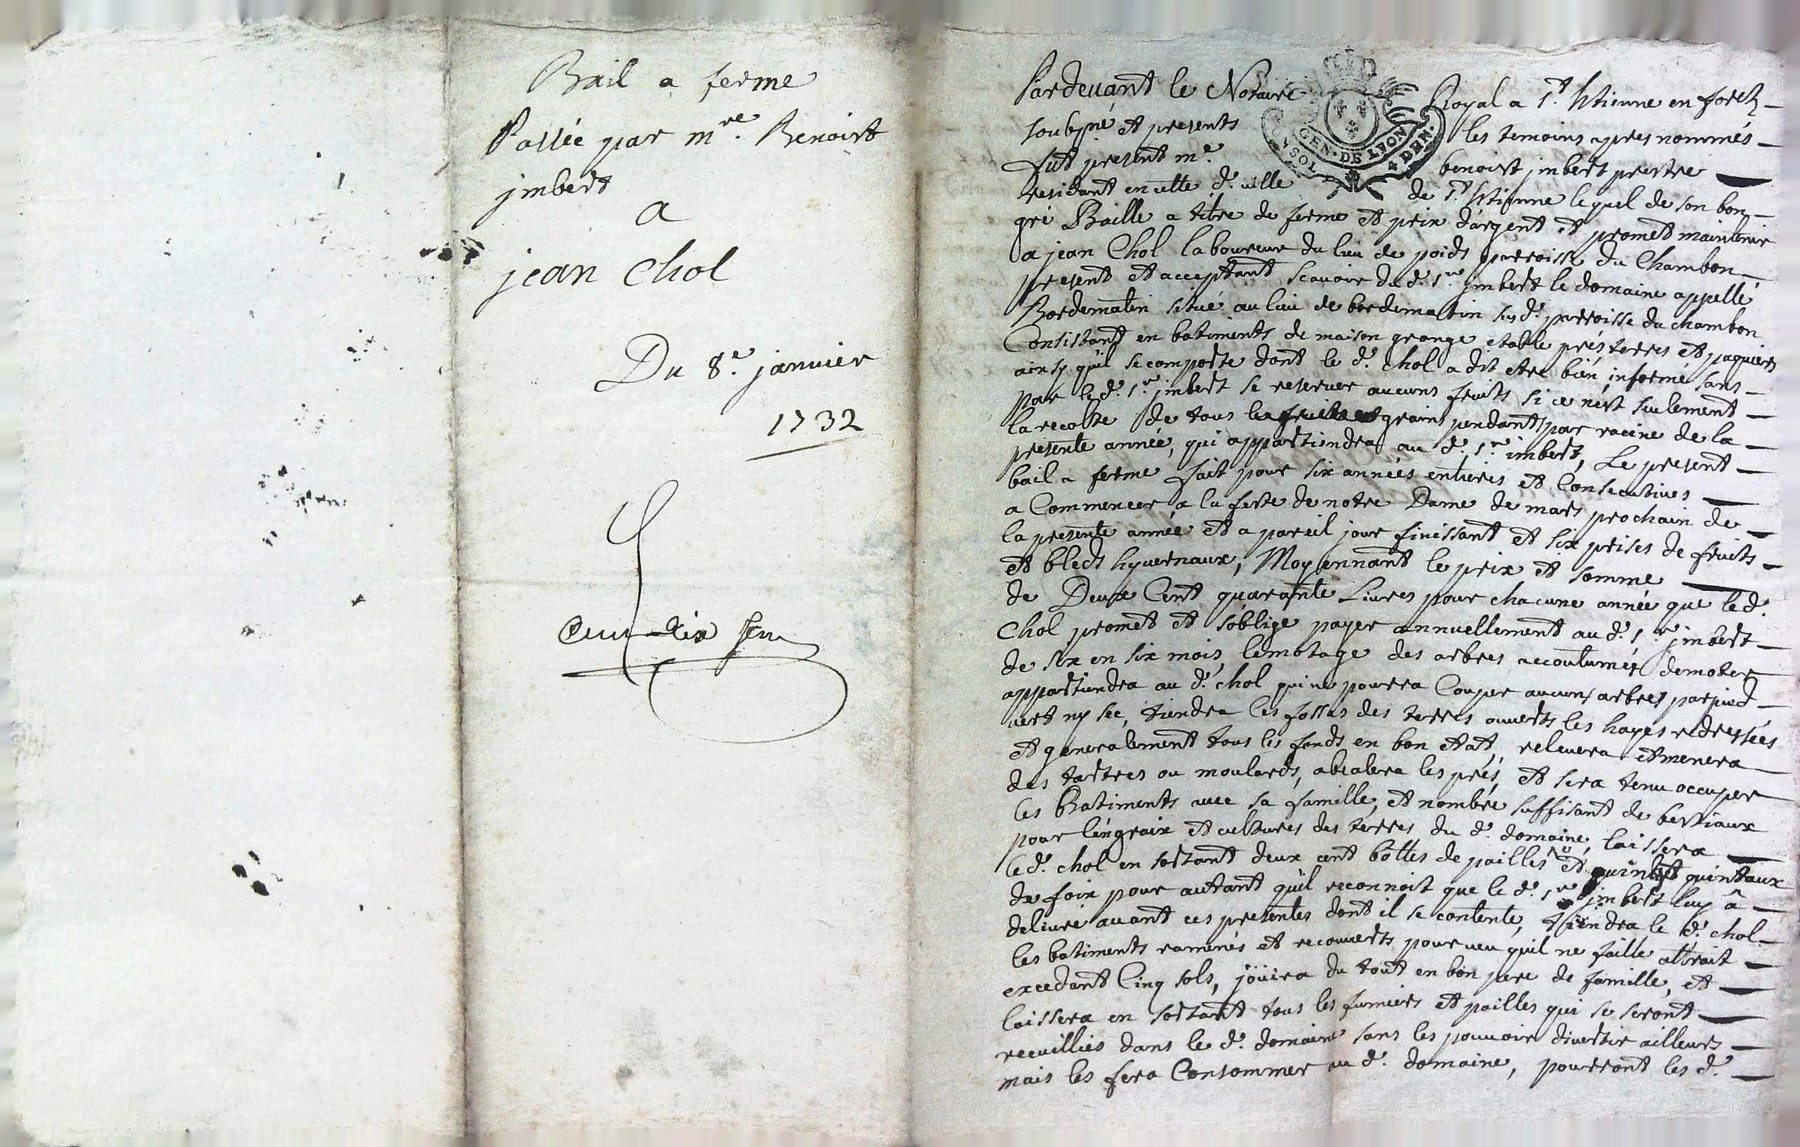 Bail a ferme
Passée par m.re Benoist
jmbert
a
jean Chol
Du 8.e janvier
1732
Pardevant le Notaire Royal a S.t Etienne en forez
soubsné et presents les temoins apres nommés
fut present m.e benoist jmbert prestre
residant en cette d.e ville de S.t Etienne lequel de son bon
gré Baille a titre de ferme et prix d'argent et promet maintenir
a jean Chol laboureur du lieu de poids parroisse du Chambon
present et acceptant scavoir du d. s.r jmbert le domaine appellé
Bordematin situé au lieu de bordematin sus d. parroisse du chambon
Consistant en batiments de maison grange etable prés terres et paquiers
ainsy qu'il se comporte dont le d. chol a dit etre bien informé sans
par le d. s.r jmbert se reserver aucuns fruits si ce n'est seulement
la recolte de tous les grains pendants par racine de la
presente année, qui appartiendra au d. s.r imbert, Le present
bail a ferme fait pour six années entieres et Consecutives
a Commencer a la feste de notre Dame de mars prochain de
la presente année et a pareil jour finissant et six prises de fruits
et bleds hyvernaux, Moyennant le prix et somme
de Deux Cent quarante Livres pour chacune année que le d.
Chol promet et s'oblige payer annuellement au d. s.r jmbert
de six en six mois, lemotage des arbres accoutumés demoter
appartiendra au d. chol qui ne pourra Couper aucuns arbres par pied
vert ny sec, tiendra les fossés des terres ouverts les hayes redressées
et generalement tous les fonds en bon etat, relevera et menera
des tartres ou moulards, abealera les prés, et sera tenu occuper
les Batiments avec sa famille, et nombre suffisant de bestiaux
pour l'engraix et cultures des terres du d. domaine, laissera
le d. chol en sortant deux cent bottes de pailles et quintaux
de foin pour autant qu'il reconnoit que le d. s.r jmbert luy a
delivré avant ces presentes dont il se contente, tiendra le d. chol
les batiments ramenés et recouverts pourveu qu'il ne faille attrait
excedant Cinq sols, joüira du tout en bon pere de famille, et
laissera en sortant tous les fumiers et pailles qui se seront
recueillies dans le d. domaine sans les pouvoir divertir ailleurs
mais les fera Consommer au d. domaine, pourront les d.
GEN. DE LYON